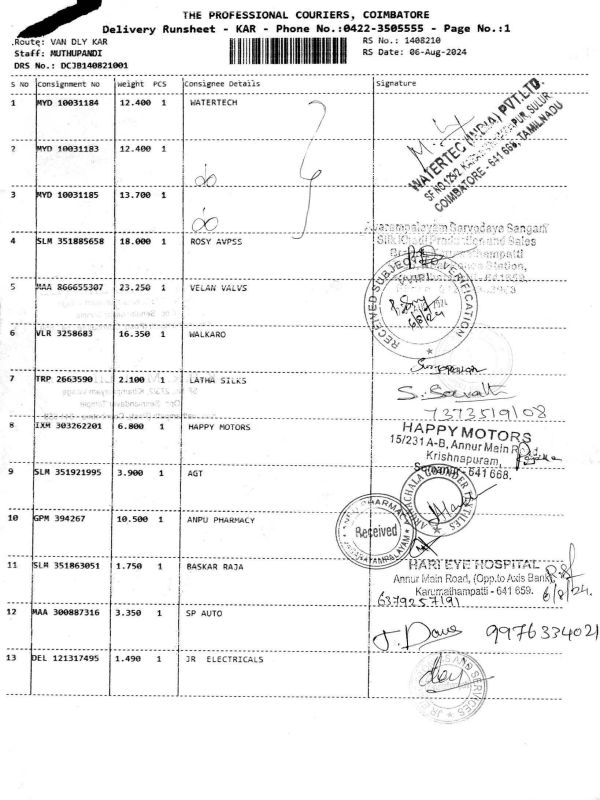 THE PROFESSIONAL COURIERS, COIMBATORE
Delivery Runsheet - KAR - Phone No.:0422-3505555 - Page No.:1
Route: VAN DLY KAR
Staff: MUTHUPANDI
DRS No.: DCJB140821001
RS No.: 1408210
RS Date: 06-Aug-2024
S No Consignment No Weight PCS Consignee Details Signature
1 MYD 10031184 12.400 1 WATERTECH
WATERTEC (INDIA) PVT.LTD.
COIMBATORE - 641 668, TAMILNADU
2 MYD 10031183 12.400 1
3 MYD 10031185 13.700 1
4 SLM 351885658 18.000 1 ROSY AVPSS
5 MAA 866655307 23.250 1 VELAN VALVS
RECEIVED SUBJECT VERIFICATION
6/8/24
6 VLR 3258683 16.350 1 WALKARO
7 TRP 2663590 2.100 1 LATHA SILKS
7373519108
8 IXM 303262201 6.800 1 HAPPY MOTORS
HAPPY MOTORS
15/231 A-B, Annur Main
Krishnapuram,
641 668.
9 SLM 351921995 3.900 1 AGT
10 GPM 394267 10.500 1 ANPU PHARMACY
Received
11 SLM 351863051 1.750 1 BASKAR RAJA
HARI EYE HOSPITAL
Annur Main Road, (Opp.to Axis Bank)
Karumathampatti - 641 659.
6379257191
6/8/24.
12 MAA 300887316 3.350 1 SP AUTO
9976334021
13 DEL 121317495 1.490 1 JR ELECTRICALS